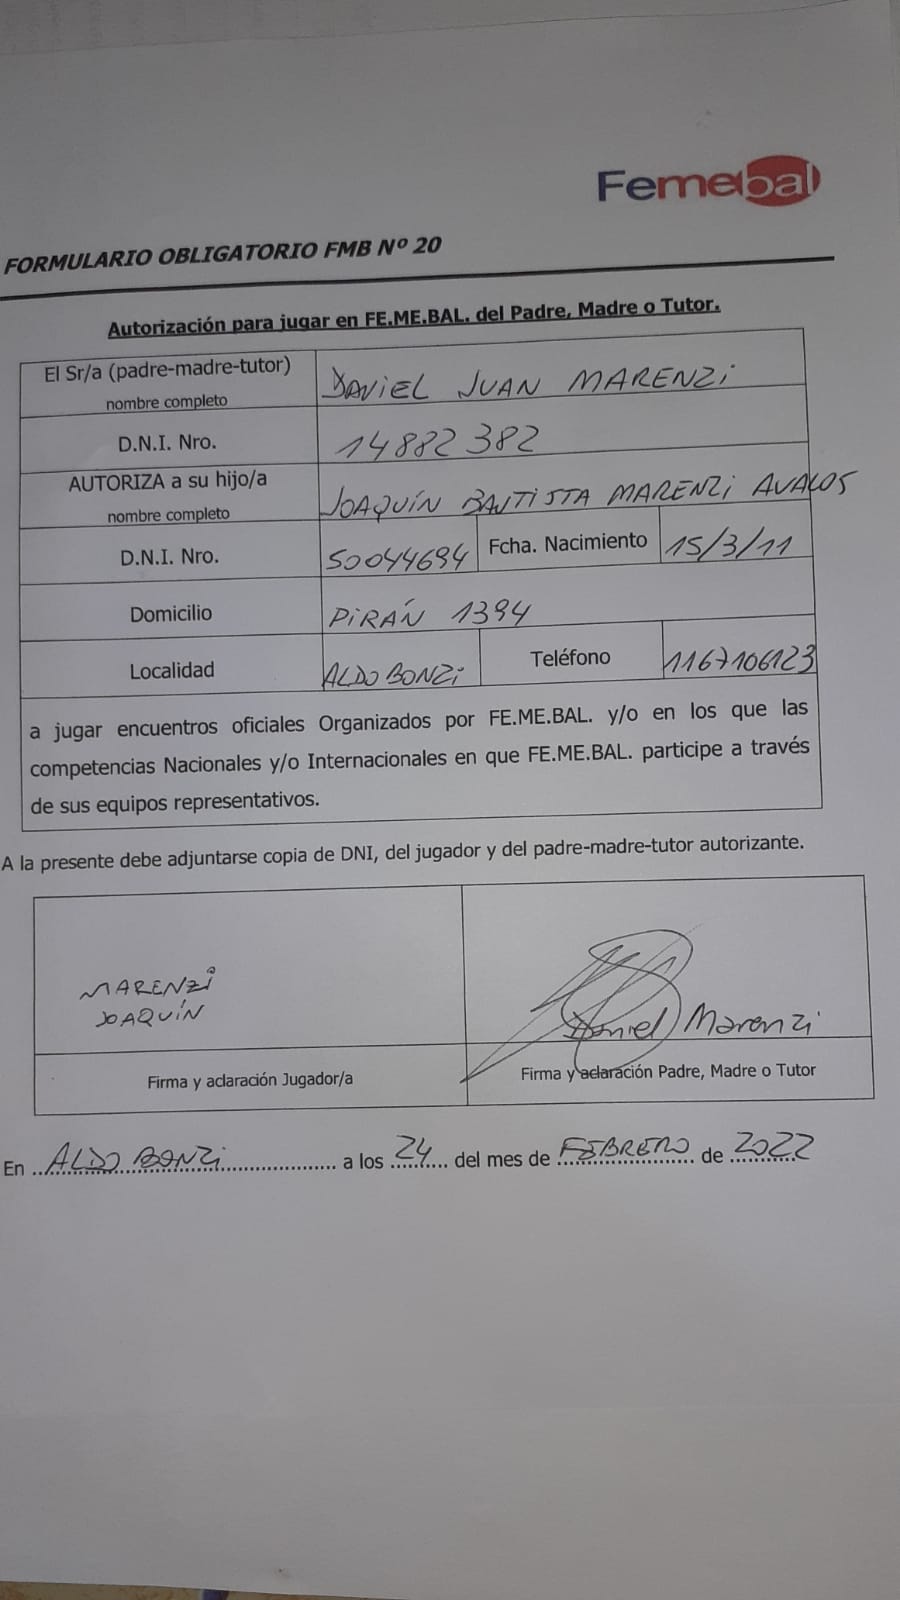 Femebal
FORMULARIO OBLIGATORIO FMB Nº 20
Autorización para jugar en FE.ME.BAL. del Padre, Madre o Tutor.
El Sr/a (padre-madre-tutor)
nombre completo
DANIEL JUAN MARENZI
D.N.I. Nro.
14882382
AUTORIZA a su hijo/a
nombre completo
JOAQUÍN BAUTISTA MARENZI AVALOS
D.N.I. Nro.
50044694
Fcha. Nacimiento
15/3/11
Domicilio
PIRÁN 1394
Localidad
ALDO BONZI
Teléfono
1167106123
a jugar encuentros oficiales Organizados por FE.ME.BAL. y/o en los que las
competencias Nacionales y/o Internacionales en que FE.ME.BAL. participe a través
de sus equipos representativos.
A la presente debe adjuntarse copia de DNI, del jugador y del padre-madre-tutor autorizante.
MARENZI
JOAQUÍN
Daniel Marenzi
Firma y aclaración Jugador/a
Firma y aclaración Padre, Madre o Tutor
En ALDO BONZI a los 24 del mes de FEBRERO de 2022